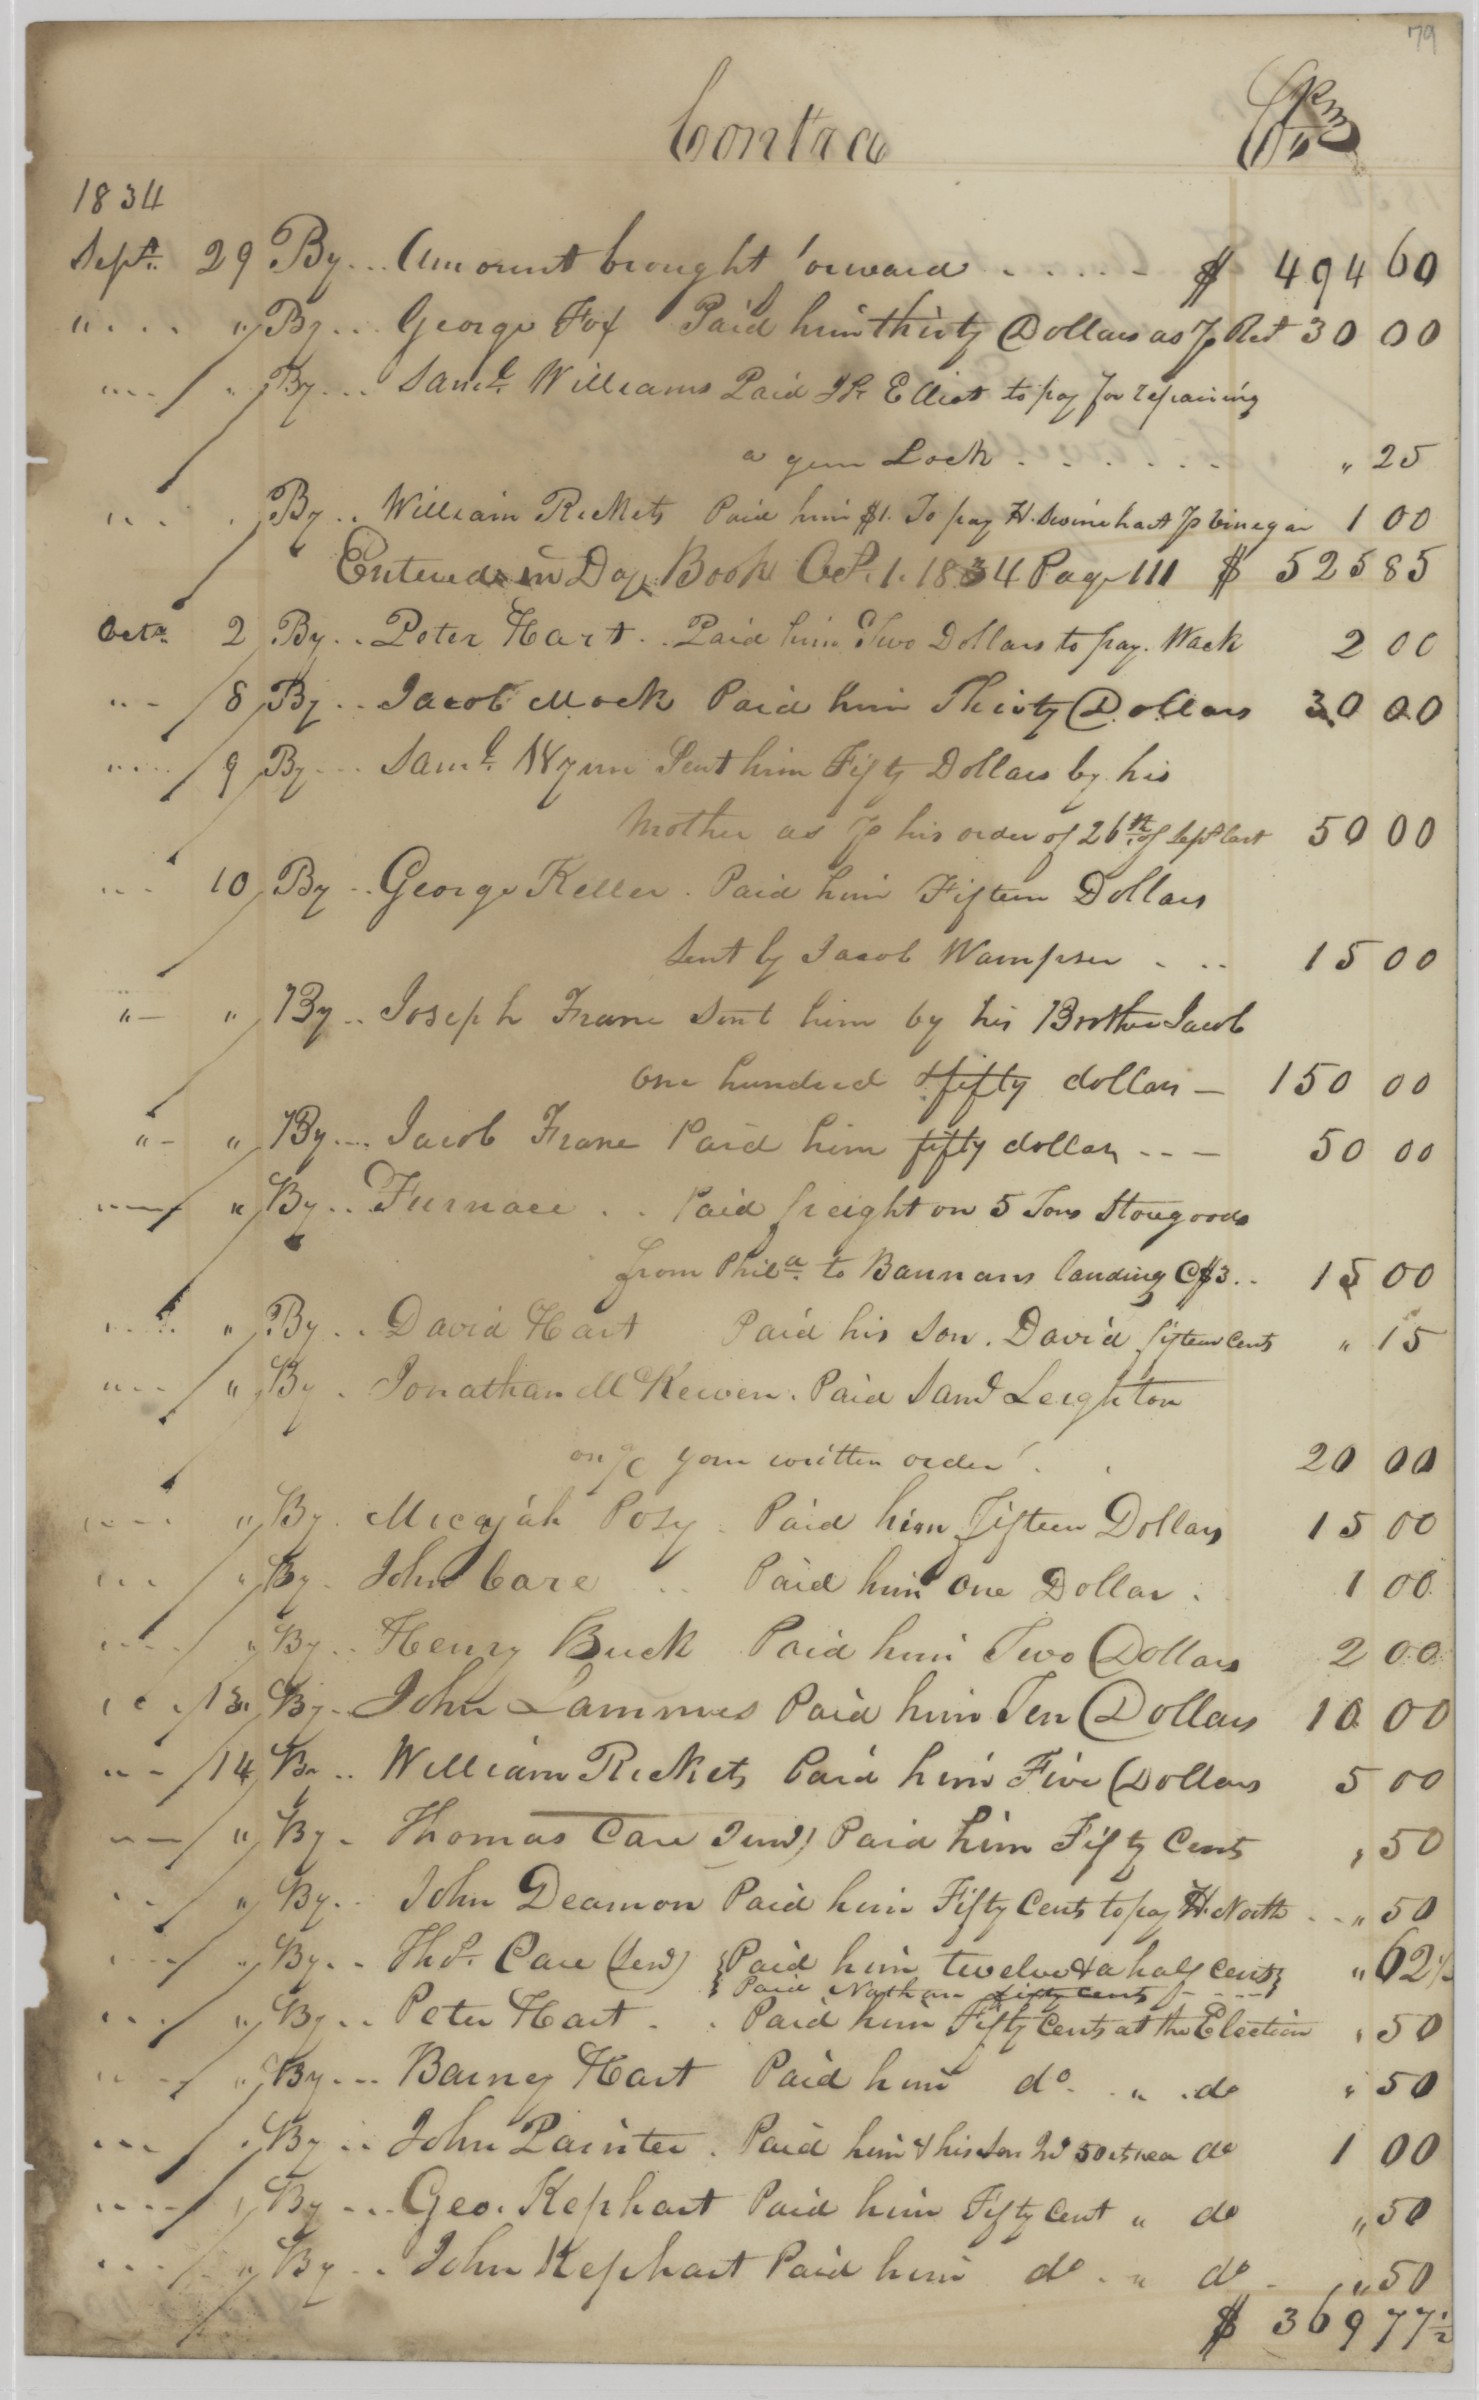 79
Contra Cr
1834
Sepr. 29 By... Amount brought forward ..... $ 494 60
" .... " By... George Fox Paid him thirty Dollars as P Rct 30 00
... " By... Saml. Williams Paid Elliot to pay for repairing
a gun Lock ...... " 25
... . By.. William Rickets Paid him $1. To pay H. Swinehart P Vinegar 1 00
Entered in Day Book Oct. 1. 1834 Page 111 $ 525 85
Octr. 2 By.. Peter Hart.. Paid him Two Dollars to pay. Wack 2 00
.. - 8 By.. Jacob Mock Paid him Thirty Dollars 30 00
.... 9 By... Saml. Wynn Sent him Fifty Dollars by his
Mother as P his order of 26th of Sept last 50 00
... 10 By.. George Keller. Paid him Fifteen Dollars
Sent by Jacob Wampser . .. 15 00
" - " By.. Joseph Frane Sent him by his Brother Jacob
one hundred & fifty dollars - 150 00
" - " By.... Jacob Frane Paid him fifty dollars -- - 50 00
---- " By.. Furnace .. Paid freight on 5 Tons Stovegoods
from Phila. to Baumans landing @ $3.. 15 00
.... " By.. David Hart Paid his Son. David fifteen Cents " 15
"... " By . Jonathan McKewen. Paid Saml Leighton
on a/c your written order . . 20 00
.... " By. Micajah Posy . Paid him Fifteen Dollars 15 00
... " By. John Care .. Paid him One Dollar . 1 00
.... " By.. Henry Buck Paid him Two Dollars 2 00
... 13. By.. John Lammes Paid him Ten Dollars 10 00
.. - 14 By .. William Rickets Paid him Five Dollars 5 00
-- " By. Thomas Care Junr) Paid him Fifty Cents " 50
.. " By.. John Deamon Paid him Fifty Cents to pay H. North ..." 50
.... " By.. Thos. Care (Senr) {Paid him twelve & a half cents} " 62½
{Paid Nathan fifty cents - ----}
... " By.. Peter Hart . . Paid him Fifty Cents at the Election " 50
.... " By... Barney Hart Paid him do. " .do " 50
... " By .. John Painter. Paid him & his Son 50 cts do 1 00
.... " By ... Geo. Kephart Paid him Fifty Cent " do " 50
... " By.. John Kephart Paid him do. " do - " 50
$ 369 77½